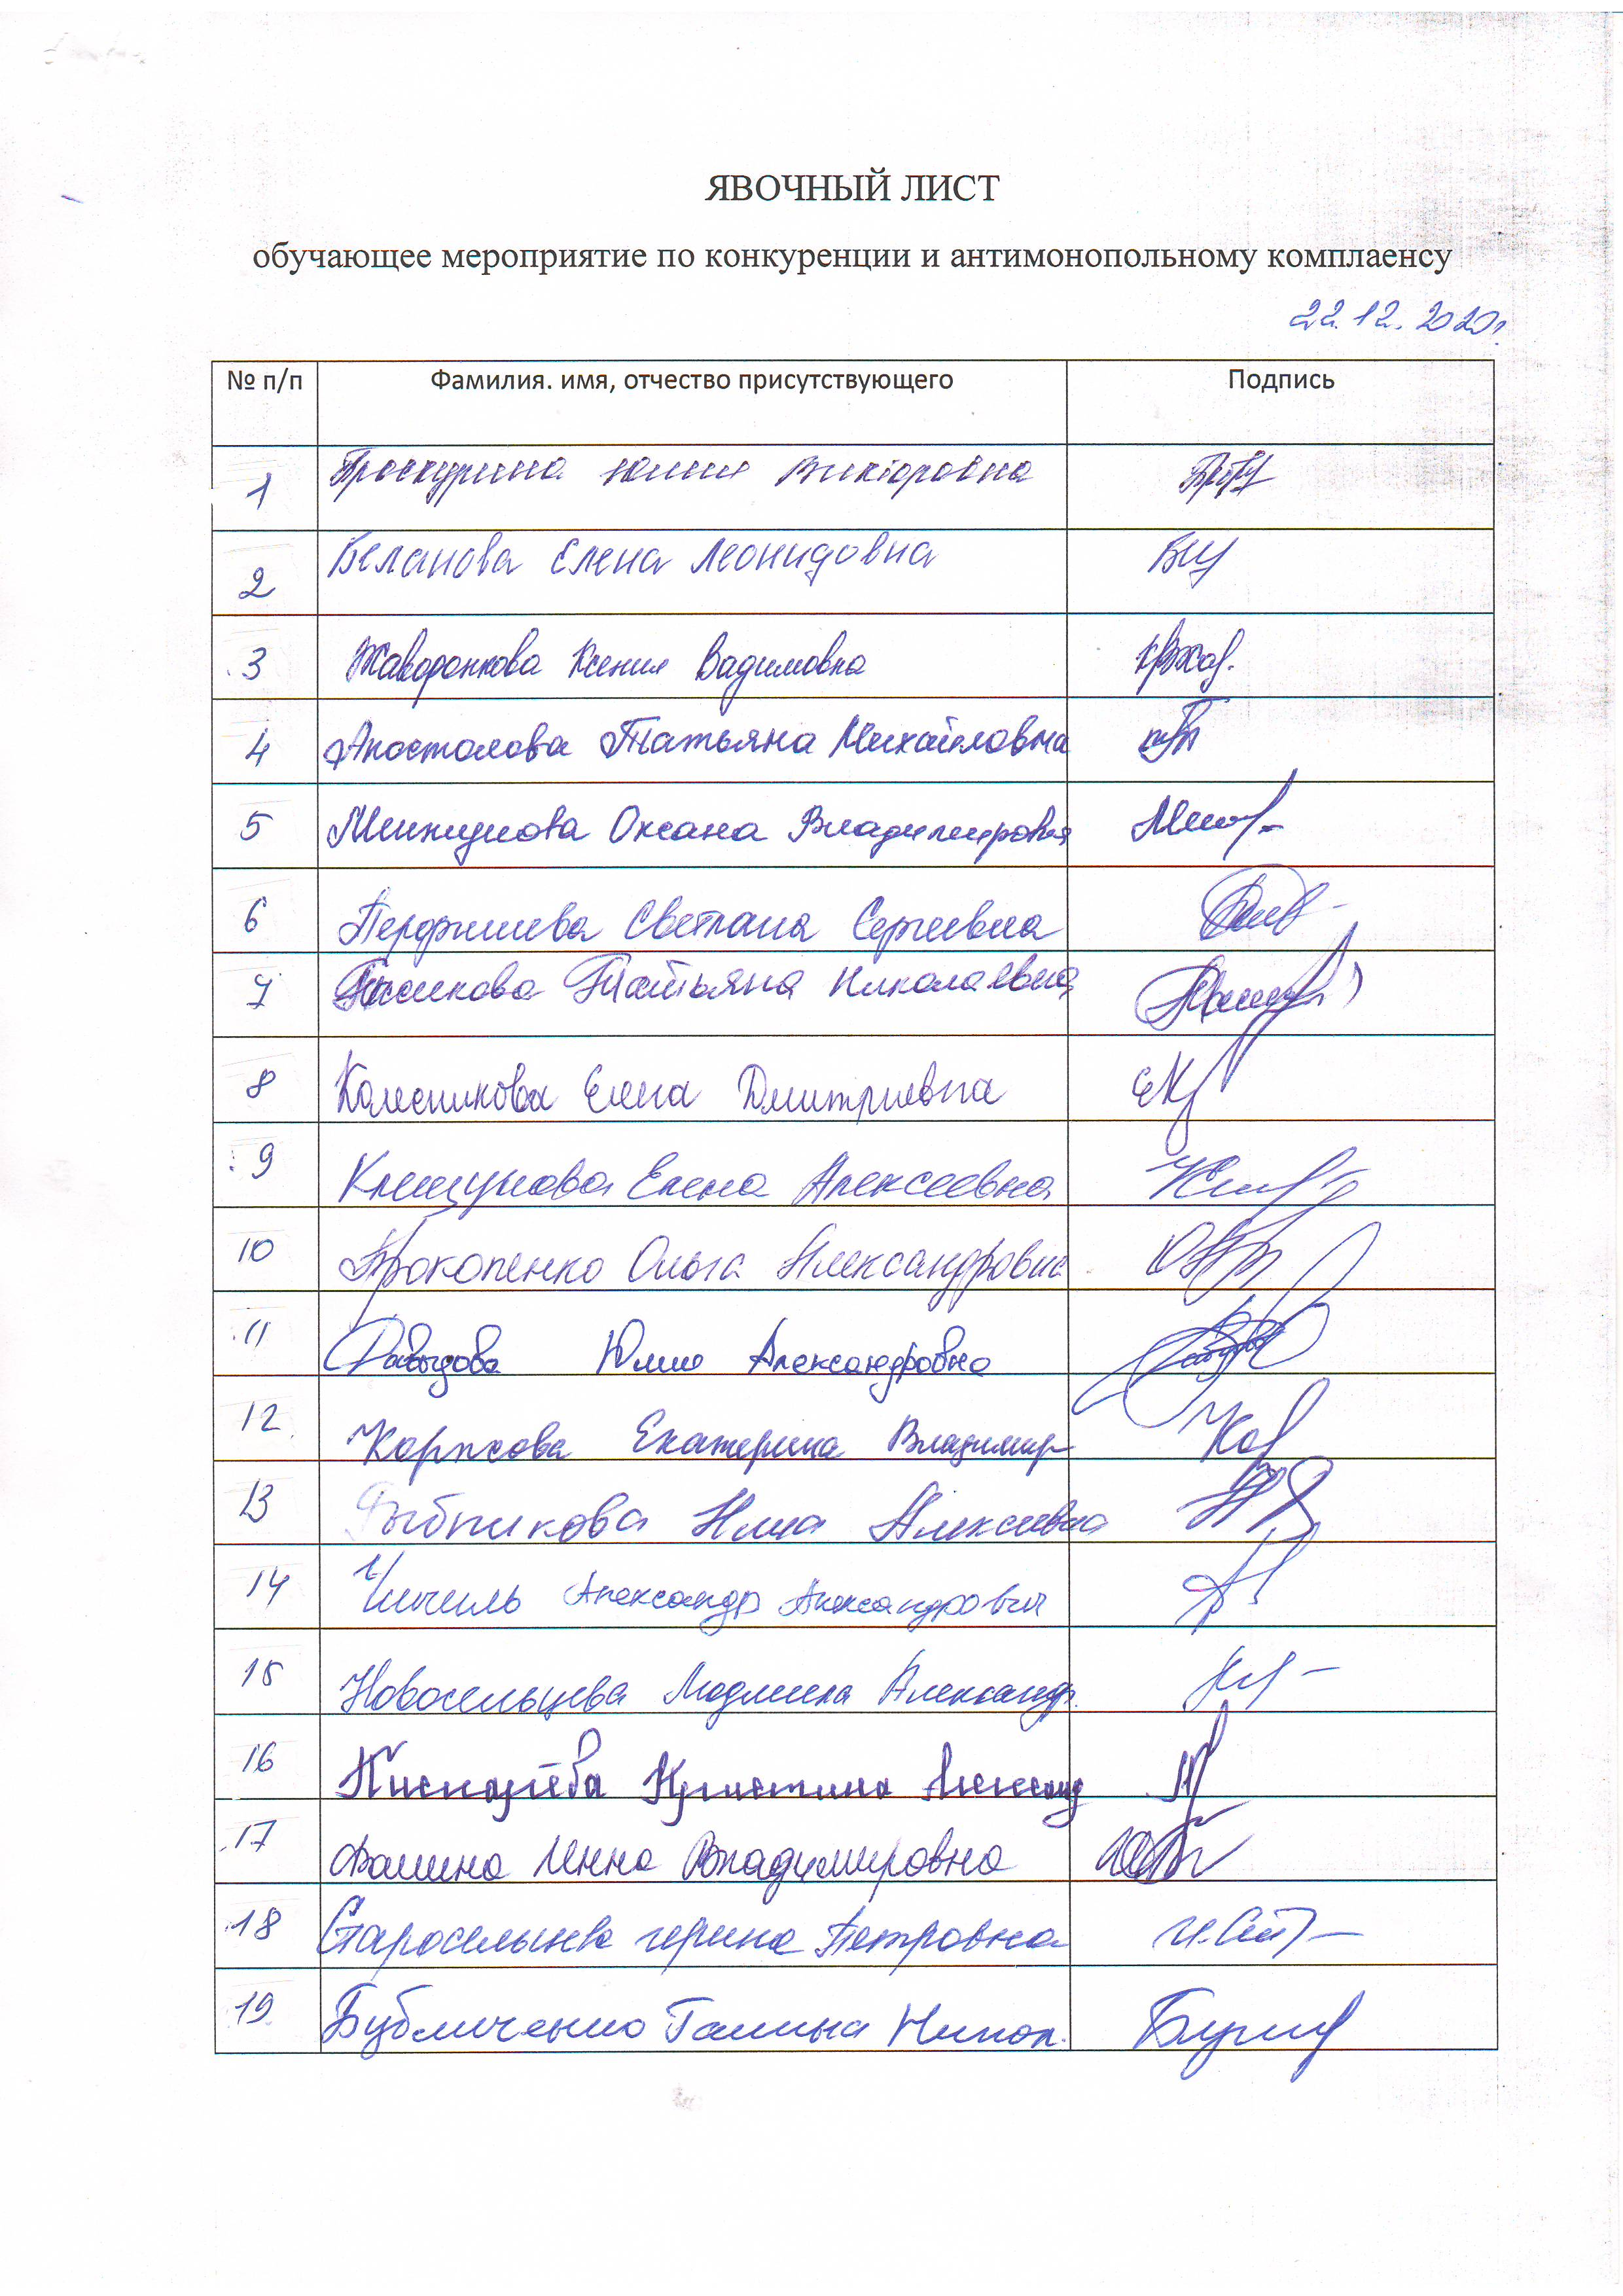 ЯВОЧНЫЙ ЛИСТ
обучающее мероприятие по конкуренции и антимонопольному комплаенсу
22.12.2020г.
№ п/п Фамилия. имя, отчество присутствующего Подпись
1 Проскурина Юлия Викторовна
2 Беланова Елена Леонидовна
3 Жаворонкова Ксения Вадимовна
4 Апостолова Татьяна Михайловна
5 Оксана Владимировна
6 Перфишева Светлана Сергеевна
7 Татьяна Николаевна
8 Колесникова Елена Дмитриевна
9 Клещунова Елена Алексеевна
10 Прокопенко Ольга Александровна
11 Давыдова Юлия Александровна
12 Екатерина Владимир
13 Рыбникова Алексеевна
14 Александр Александрович
15 Новосельцева Людмила Александр.
16 Кристина
17 Фомина Инна Владимировна
18 Петровна
19 Галина Никол.